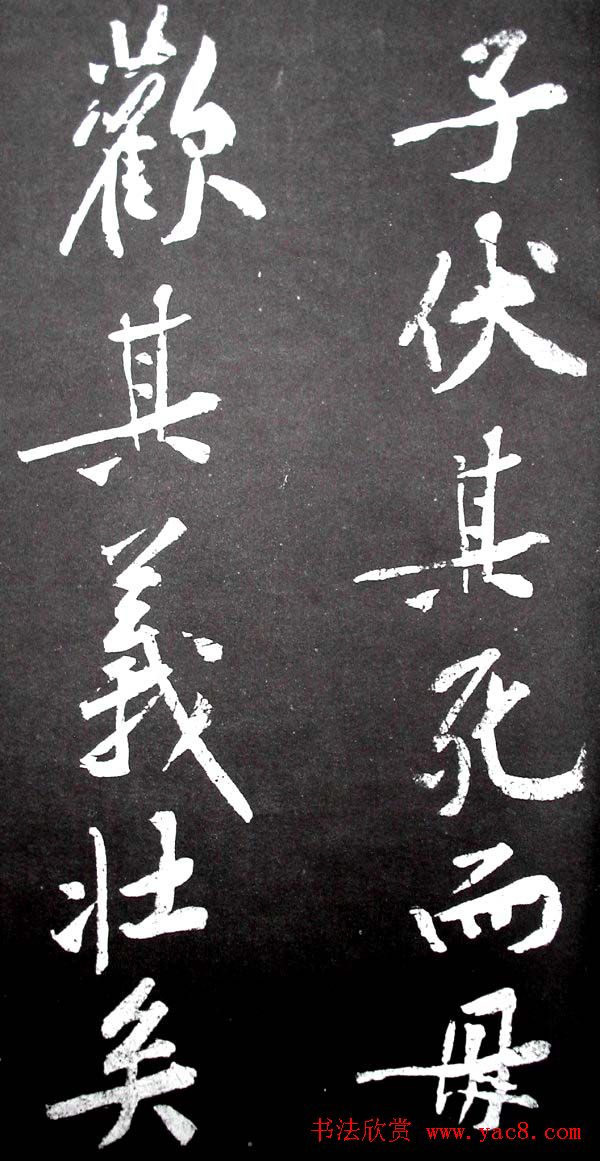 子伏其死而毋
歡其義壯矣
书法欣赏 www.yac8.com